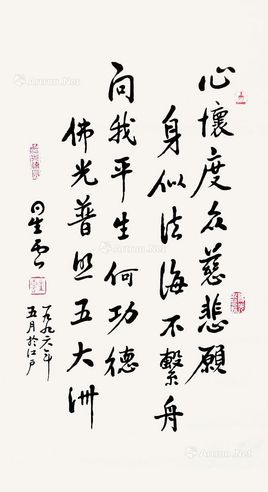 心懷度众慈悲願
身似法海不繫舟
问我平生何功德
佛光普照五大洲
星雲
一九九六年
五月於江户
Artron.Net